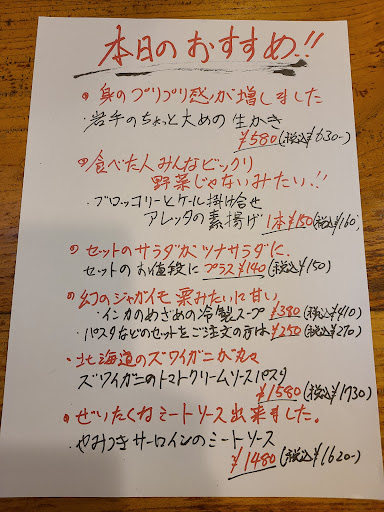 本日のおすすめ!!
・身のプリプリ感が増しました
・岩手のちょっと大めの生かき
¥580(税込¥630-)
・食べた人みんなビックリ
野菜じゃないみたい!!
・ブロッコリーとケール掛け合せ
アレッタの素揚げ 1本¥150(税込¥160)
・セットのサラダがツナサラダに
セットのお値段にプラス¥140(税込¥150)
・幻のジャガイモ 栗みたいに甘い
・インカのめざめの冷製スープ ¥380(税込¥410)
・パスタなどのセットをご注文の方は ¥250(税込¥270)
・北海道のズワイガニが丸々
ズワイガニのトマトクリームソースパスタ
¥1580(税込¥1730)
・ぜいたくなミートソース出来ました。
・やみつきサーロインのミートソース
¥1480(税込¥1620-)